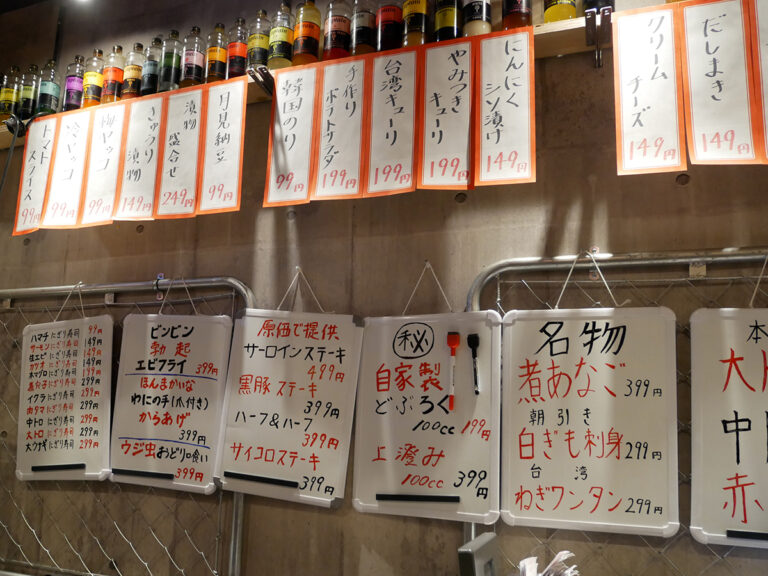 トマト
スライス
99円
冷ヤッコ
99円
ヤッコ
99円
きゅうり
漬物
149円
漬物
盛合せ
249円
月見納豆
99円
韓国のり
99円
手作り
ポテトサラダ
199円
台湾キューリ
199円
やみつき
キューリ
199円
にんにく
シソ漬け
149円
クリーム
チーズ
149円
だしまき
149円
ハマチにぎり寿司 99円
サーモンにぎり寿司 149円
生エビにぎり寿司 149円
カツオにぎり寿司 149円
本マグロにぎり寿司 199円
あなごにぎり寿司 199円
イクラにぎり寿司 299円
肉タマにぎり寿司 299円
中トロにぎり寿司 299円
大トロにぎり寿司 299円
大ウナギにぎり寿司 299円
ビンビン
勃起
エビフライ 399円
ほんまかいな
わにの手(爪付き)
からあげ
399円
ウジ虫おどり喰い
399円
原価で提供
サーロインステーキ
499円
黒豚ステーキ
399円
ハーフ&ハーフ
399円
サイコロステーキ
399円
秘
自家製
どぶろく
100cc 199円
上澄み
100cc 399円
名物
煮あなご 399円
朝引き
白ぎも刺身 299円
台湾
ねぎワンタン 299円
本
大
中
赤